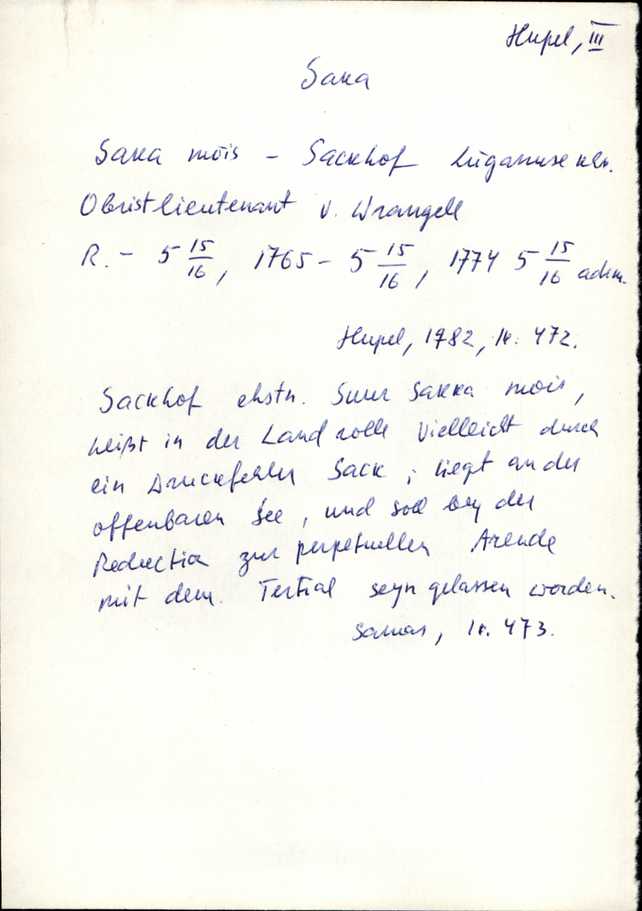 Hupel, III
Saka
Saka mois – Sackhof Lüganuse khk.
Obristlieutenant v. Wrangell
R. – 5 15/16, 1765 – 5 15/16, 1774 5 15/16 adm.
Hupel, 1782, lk. 472.
Sackhof ehstn. Suur Sakka mois,
heißt in der Landrolle vielleicht durch
ein Druckfehler Sack; liegt an der
offenbaren See, und soll bey der
Reduction zur perpetuellen Arende
mit dem Tertial seyn gelassen worden.
Samas, lk. 473.